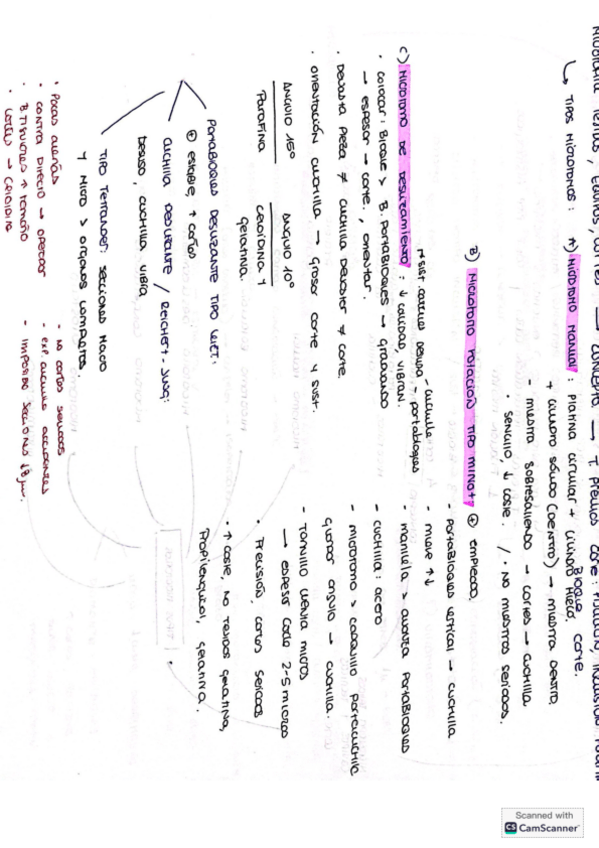 → CONCEPTO → T. PREVIOS CORE: FIJACIÓN, INCLUSIÓN
Bloque corte.
↳ TIPOS MICROTOMOS: A) MICROTOMO MANUAL: Platina circular + cilindro hueco,
+ cilindro sólido (DENTRO) → muestra dentro,
- muestra sobresaliendo → cortes → cuchilla.
• sencillo ↓ coste. / • NO muestras seriadas.
B) MICROTOMO ROTACIÓN TIPO MINOT: ⊕ empleado,
- portabloques vertical → cuchilla
- mueve ↑↓
- manivela > avanza portabloques
- cuchilla: acero
- microtomo > carrillo portacuchilla
girar ángulo → cuchilla.
- tornillo cuenta micras
→ espesor corte 2-5 micras
• Precisión, cortes seriados
• ↑ coste, no tejidos gelatina,
Propilenglicol, gelatina.
C) MICROTOMO DE DESLIZAMIENTO: ↓ calidad, vibran.
- cuchilla
- portabloques
• colocar: Bloque > B. PORTABLOQUES → graduando
→ espesor → corte, orientar.
• Devasta pieza ≠ cuchilla devaster ≠ corte.
• orientación cuchilla → grosor corte y sust.
ÁNGULO 15º
Parafina
ÁNGULO 10º
celoidina y
gelatina.
PORTABLOQUES DESLIZANTE TIPO LEITZ:
⊕ estable, ↑ cortes
CUCHILLA DESLIZANTE / REICHERT-JUNG:
Desuso, cuchilla vibra
TIPO TETRANDER: secciones Hueso
y Nitro > órganos completos.
• Pocas averías
• Contra directo → operador
• B. Tisulares ↑ tamaño
• Cortes → celoidina
- NO cortes seriados
- exp. cuchilla accidentes
- Imposible secciones ↓8 µm.
Scanned with
CamScanner